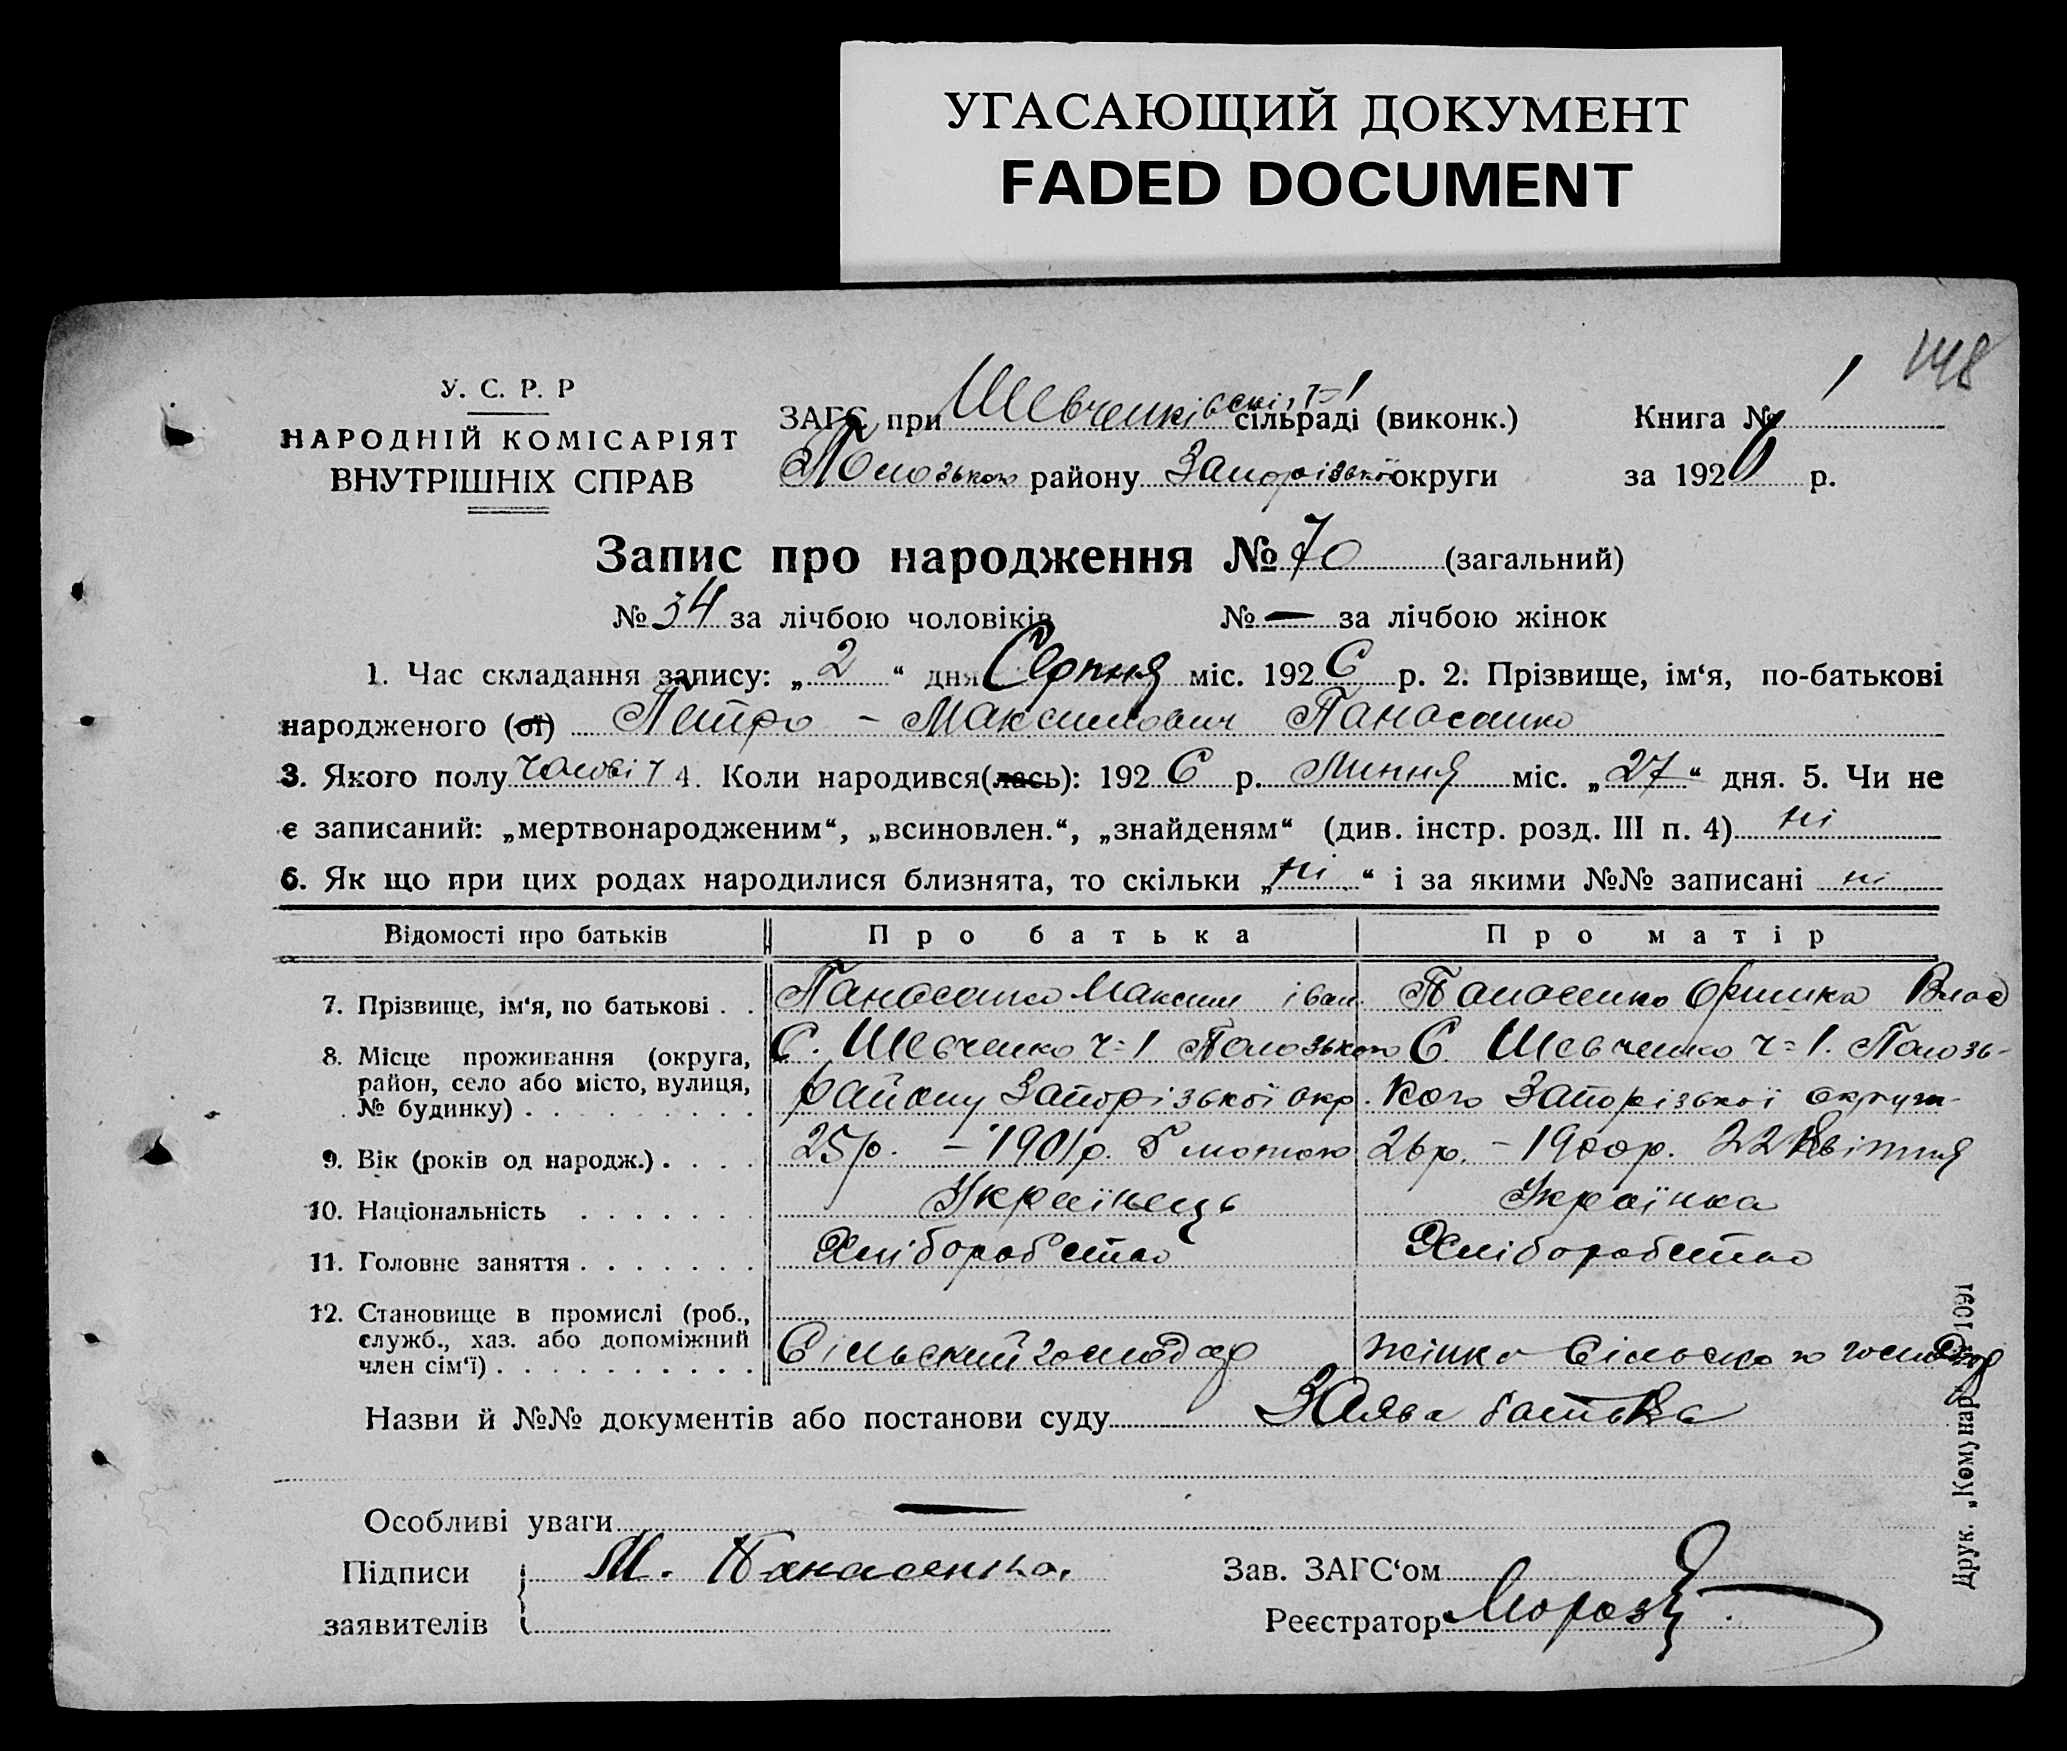 УГАСАЮЩИЙ ДОКУМЕНТ
FADED DOCUMENT
148
У. С. Р. Р
НАРОДНІЙ КОМІСАРІЯТ
ВНУТРІШНІХ СПРАВ
ЗАГС при Шевченківскі ч-1 сільраді (виконк.)
Пологзького району Запорізької округи
Книга № 1
за 1926 р.
Запис про народження № 70 (загальний)
№ 34 за лічбою чоловіків № — за лічбою жінок
1. Час складання запису: „ 2 “ дня Серпня міс. 1926 р. 2. Прізвище, ім‘я, по-батькові
народженого (ої) Петро - Максимович Панасенко
3. Якого полу чолові ч 4. Коли народився(лась): 1926 р. Липня міс. „ 27 “ дня. 5. Чи не
є записаний: „мертвонародженим“, „всиновлен.“, „знайденям“ (див. інстр. розд. III п. 4) ні
6. Як що при цих родах народилися близнята, то скільки „ ні “ і за якими №№ записані ні
Відомості про батьків Про батька Про матір
7. Прізвище, ім‘я, по батькові . . Панасенко Максим іван. Панасенко Оришка Влас
8. Місце проживання (округа, район, село або місто, вулиця, № будинку) . . . . . . . . .
С. Шевченко ч=1 Пологзького
району Запорізької окр.
С. Шевченко ч=1. Пологзь-
кого Запорізької округи
9. Вік (років од народж.) . . . . 25р. - 1901р. 5 лютого 26р. - 1900р. 22 Квітня
10. Національність . . . . . . . Українець Українка
11. Головне заняття . . . . . . . Хліборобство Хліборобство
12. Становище в промислі (роб., служб., хаз. або допоміжний член сім‘ї) . . . . . . . . . .
Сільський господар жінка Сільского господар
Назви й №№ документів або постанови суду Заява батька
Особливі уваги —
Підписи
заявителів
М. Панасенко.
Зав. ЗАГС‘ом
Реєстратор Мороз
Друк. „Комунар“ 1091